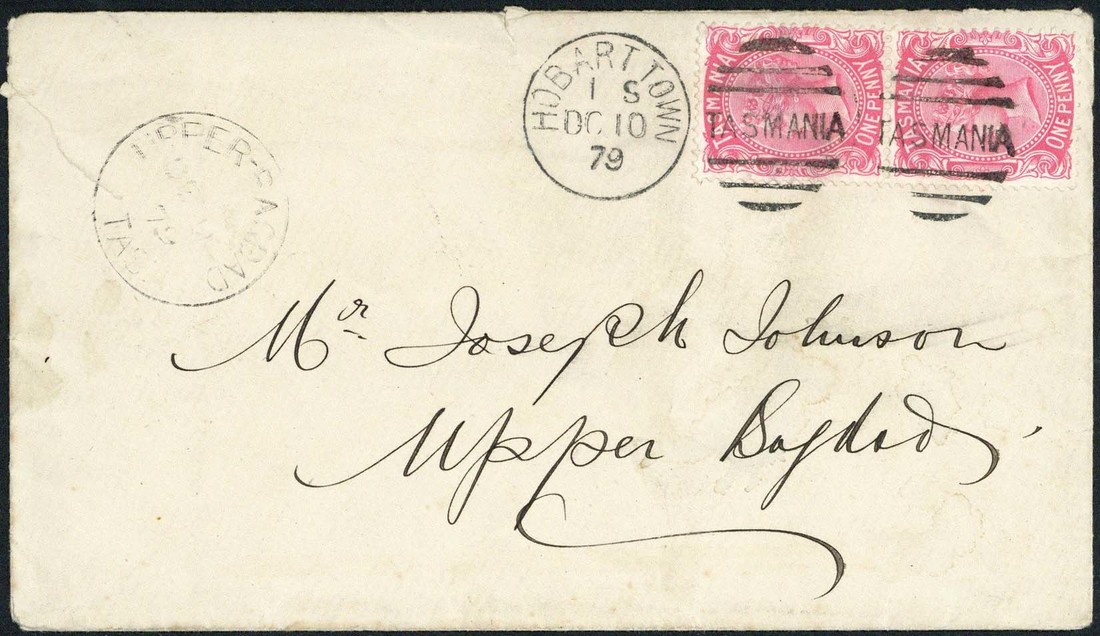 HOBART TOWN
1 S
DC 10
79
TASMANIA
TASMANIA
TASMANIA
ONE PENNY
TASMANIA
ONE PENNY
UPPER-BAGDAD
79
TAS
Mr Joseph Johnson
Upper Bagdad